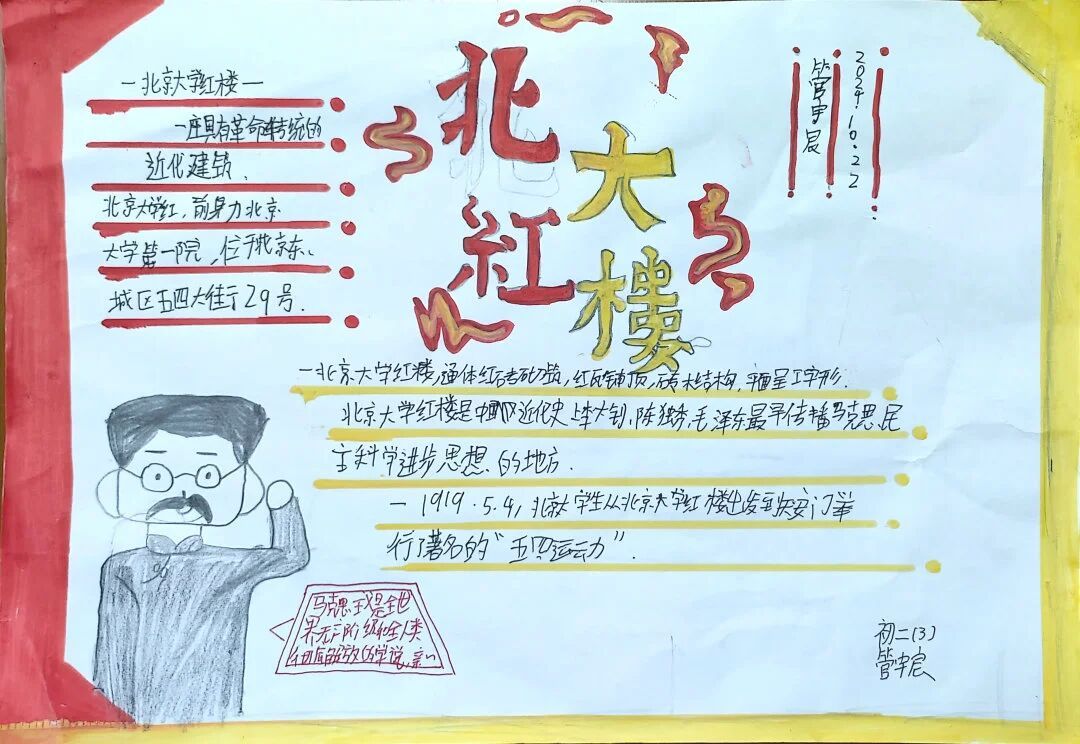 一北京大学红楼一
一座具有革命传统的
近代建筑.
北京大学红,前身力北京
大学第一院,位于北京东、
城区五四大街子29号.
北大
红楼
管宇辰
2024.10.22
一北京大学红楼,通体红砖砌筑,红瓦铺顶,砖木结构,平面呈工字形.
北京大学红楼是中国近代史上李大钊,陈独秀,毛泽东最早传播马克思,民
主科学进步思想.的地方.
一1919.5.4,北京大学生从北京大学红楼出发到天安门举
行了著名的"五四运动".
马克思主义是全世
界无产阶级和全人类
解放的学说.
初二(3)
管宇辰